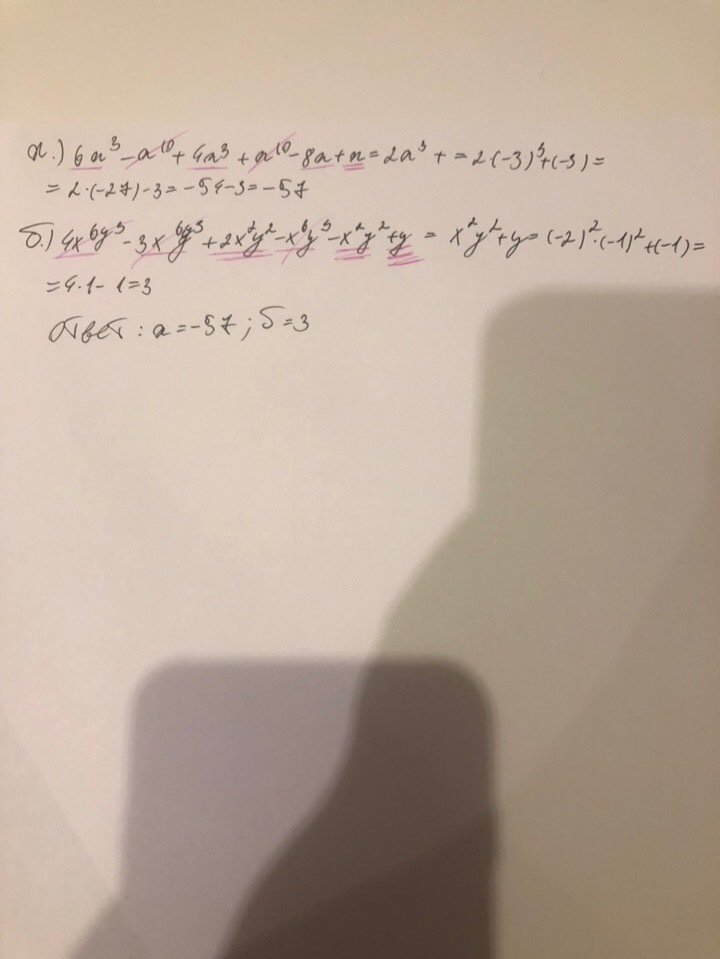 а.) 6a³-a¹⁰+4a³+a¹⁰-8a+a=2a³+=2(-3)³+(-3)=
=2·(-27)-3=-54-3=-57
б.) 4x⁶y³-3x⁶y³+2x²y²-x⁶y³-x²y²+y=x²y²+y=(-2)²·(-1)²+(-1)=
=4·1-1=3
Ответ: а=-57; б=3